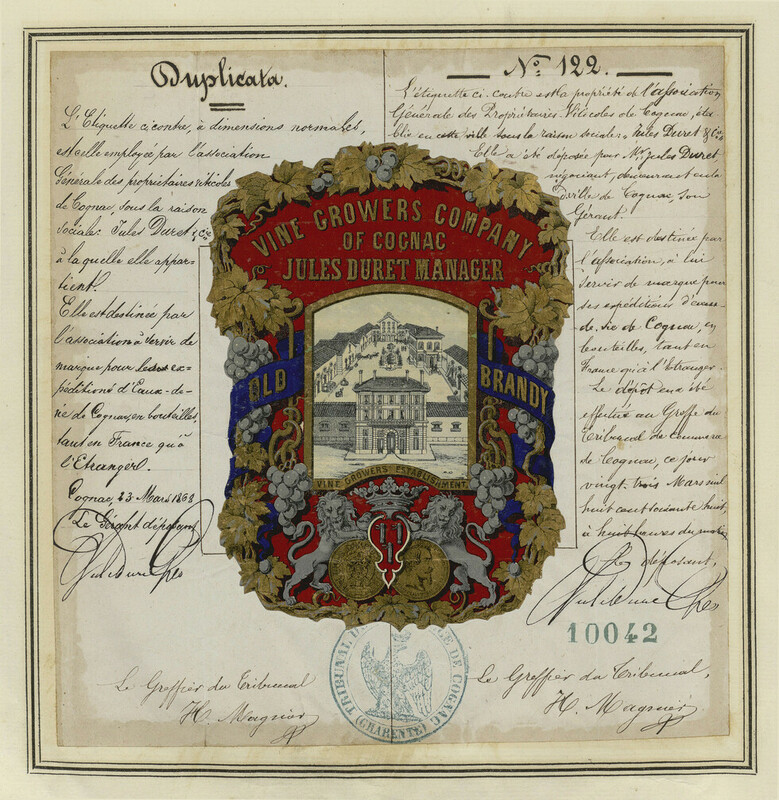 Duplicata.
L'Etiquette ci contre, à dimensions normales,
est celle employée par l'association
Générale des propriétaires viticoles
de Cognac, sous la raison
sociale: Jules Duret & Cie
à laquelle elle appar-
tient.
Elle est destinée par
l'association à servir de
marque pour les ex-
péditions d'Eaux-de-
vie de Cognac, en bouteilles,
tant en France qu'à
l'Etranger.
Cognac, 23 Mars 1868
Le Gérant déposant
No. 122.
L'étiquette ci-contre est la propriété de l'association
Générale des Propriétaires Viticoles de Cognac, éta-
blie en cette ville sous la raison sociale Jules Duret & Cie
Elle a été déposée par Mr. Jules Duret
négociant, demeurant en la
ville de Cognac, son
Gérant.
Elle est destinée par
l'association, à lui
servir de marque pour
ses expéditions d'eaux-
de-vie de Cognac, en
bouteilles, tant en
France qu'à l'Etranger.
Le dépôt en a été
effectué au Greffe du
Tribunal de commerce
de Cognac, ce jour
vingt-trois Mars mil
huit cent soixante huit,
à huit heures du matin
Le déposant,
VINE GROWERS COMPANY
OF COGNAC
JULES DURET MANAGER
OLD BRANDY
VINE GROWERS' ESTABLISHMENT
10042
TRIBUNAL DE DE COGNAC
(CHARENTE)
Le Greffier du Tribunal
H. Magnier
Le Greffier du Tribunal,
H. Magnier